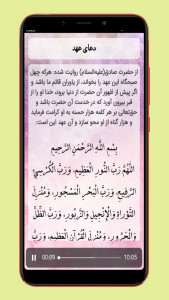 دعای عهد
از حضرت صادق(علیه‌السلام) روایت شده: هرکه چهل
صبحگاه این عهد را بخواند، از یاوران قائم ما باشد و
اگر پیش از ظهور آن حضرت از دنیا برود، خدا او را از
قبر بیرون آورد که در خدمت آن حضرت باشد و
حق‌تعالی بر هر کلمه هزار حسنه به او کرامت فرماید
و هزار گناه از او محو سازد و آن عهد این است:
بِسْمِ اللَّهِ الرَّحْمَنِ الرَّحِيمِ
اللَّهُمَّ رَبَّ النُّورِ الْعَظِيمِ، وَرَبَّ الْكُرْسِيِّ
الرَّفِيعِ، وَرَبَّ الْبَحْرِ الْمَسْجُورِ، وَمُنْزِلَ
التَّوْرَاةِ وَالْإِنْجِيلِ وَالزَّبُورِ، وَرَبَّ الظِّلِّ
وَالْحَرُورِ، وَمُنْزِلَ الْقُرْآنِ الْعَظِيمِ، وَرَبَّ
00:09
10:05